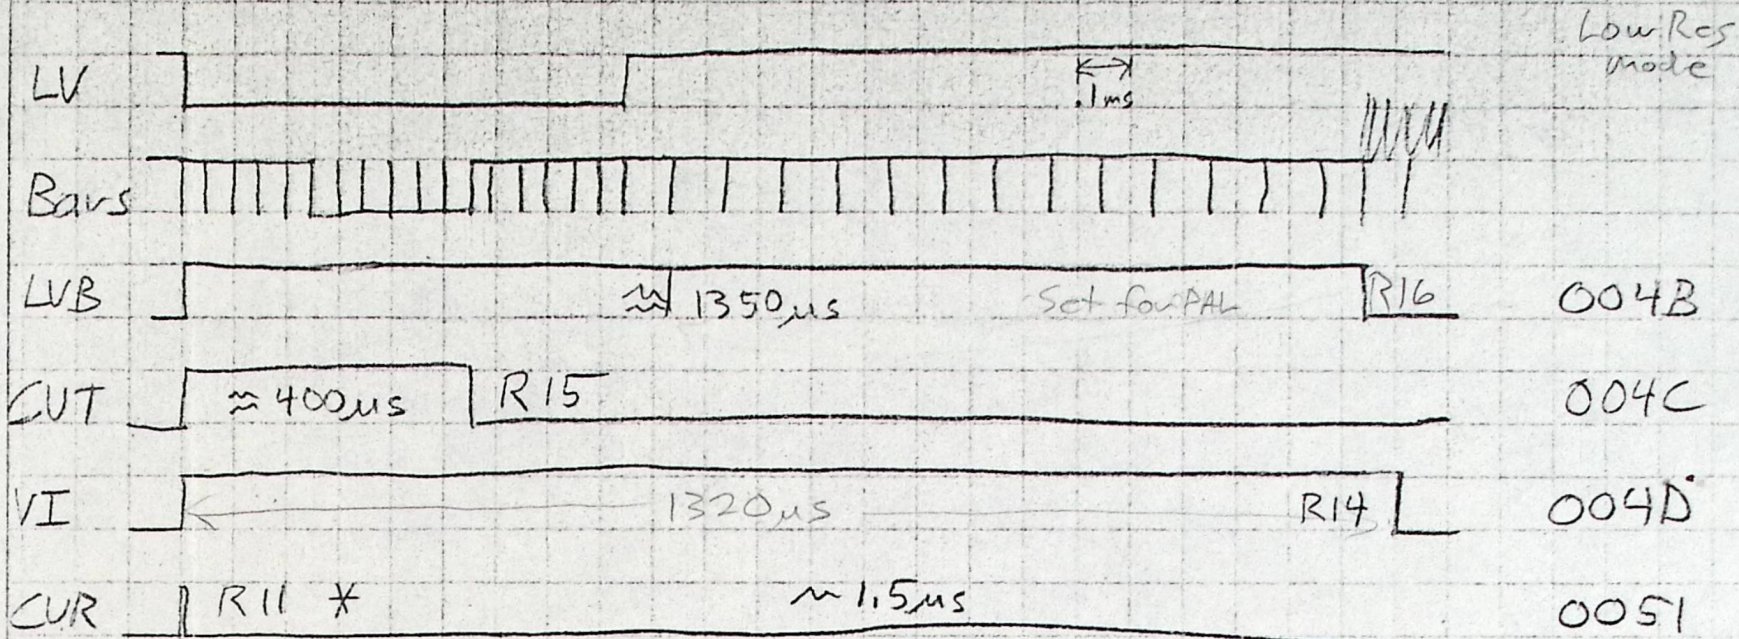 Low Res
mode
LV
.1ms
Bars
LVB ≈ 1350μs Set for PAL R16 004B
CUT ≈ 400μs R15 004C
VI 1320μs R14 004D
CUR R11 * ~1.5μs 0051